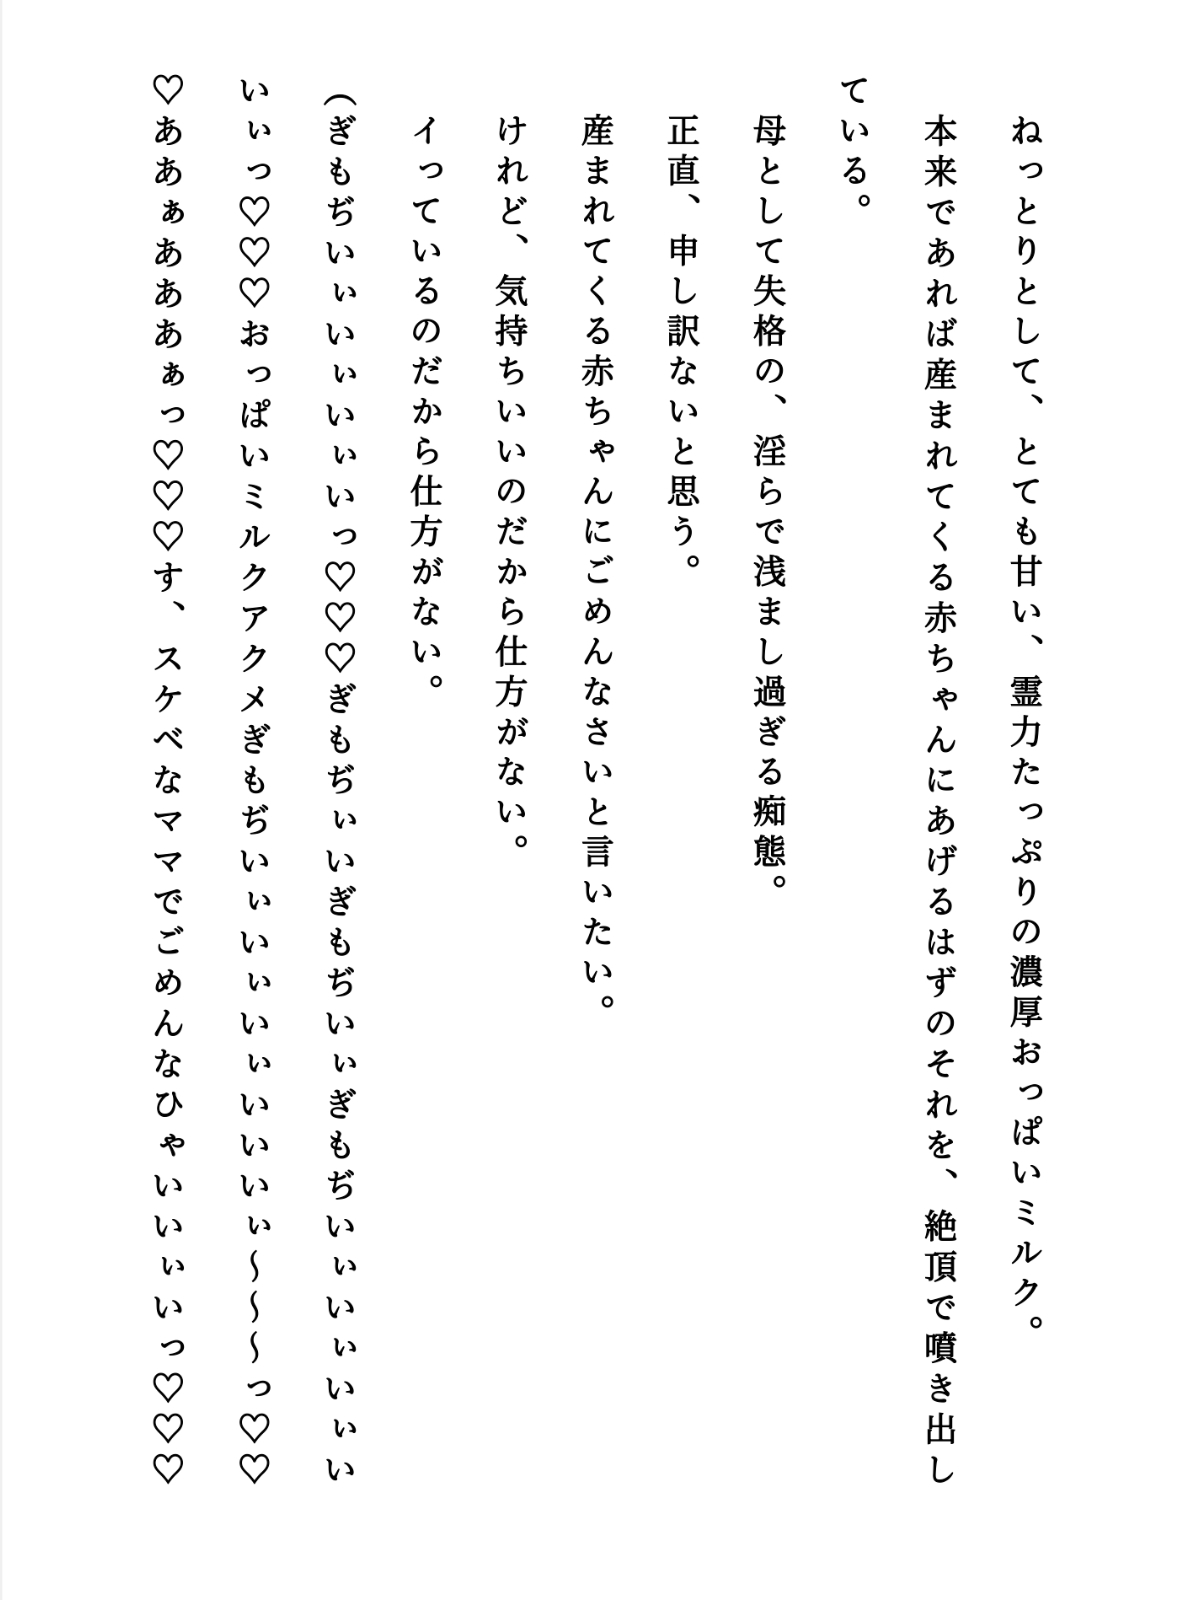 ねっとりとして、とても甘い、霊力たっぷりの濃厚おっぱいミルク。
本来であれば産まれてくる赤ちゃんにあげるはずのそれを、絶頂で噴き出し
ている。
母として失格の、淫らで浅まし過ぎる痴態。
正直、申し訳ないと思う。
産まれてくる赤ちゃんにごめんなさいと言いたい。
けれど、気持ちいいのだから仕方がない。
イっているのだから仕方がない。
（ぎもぢいぃいぃいぃいっ♡♡♡ぎもぢぃいぎもぢいぃぎもぢいぃいぃいぃい
いぃっ♡♡♡おっぱいミルクアクメぎもぢいぃいぃいぃいいいぃ～～～っ♡♡
♡ああぁあああぁっ♡♡♡す、スケベなママでごめんなひゃいいぃいっ♡♡♡